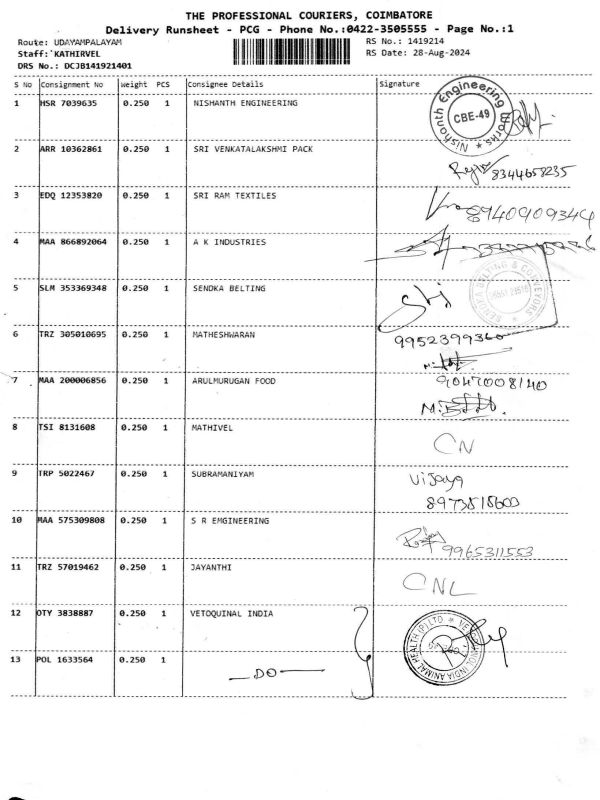 THE PROFESSIONAL COURIERS, COIMBATORE
Delivery Runsheet - PCG - Phone No.:0422-3505555 - Page No.:1
Route: UDAYAMPALAYAM RS No.: 1419214
Staff: KATHIRVEL RS Date: 28-Aug-2024
DRS No.: DCJB141921401
S No Consignment No Weight PCS Consignee Details Signature
1 HSR 7039635 0.250 1 NISHANTH ENGINEERING
Nishanth Engineering Works
CBE-49
2 ARR 10362861 0.250 1 SRI VENKATALAKSHMI PACK
8344658235
3 EDQ 12353820 0.250 1 SRI RAM TEXTILES
8940909344
4 MAA 866892064 0.250 1 A K INDUSTRIES
5 SLM 353369348 0.250 1 SENDKA BELTING
BELTING & CONVEYORS
6 TRZ 305010695 0.250 1 MATHESHWARAN
9952399360
7 MAA 200006856 0.250 1 ARULMURUGAN FOOD
9047008140
8 TSI 8131608 0.250 1 MATHIVEL
CN
9 TRP 5022467 0.250 1 SUBRAMANIYAM
Vijaya
8973818603
10 MAA 575309808 0.250 1 S R EMGINEERING
9965311553
11 TRZ 57019462 0.250 1 JAYANTHI
CNL
12 OTY 3838887 0.250 1 VETOQUINAL INDIA
INDIA ANIMAL HEALTH (P) LTD
13 POL 1633564 0.250 1
DO